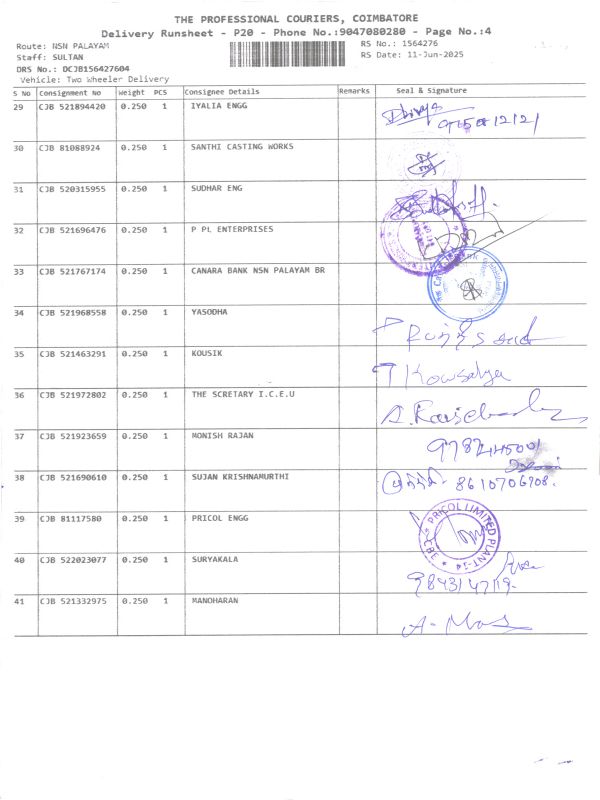 THE PROFESSIONAL COURIERS, COIMBATORE
Delivery Runsheet - P20 - Phone No.:9047080280 - Page No.:4
Route: NSN PALAYAM
RS No.: 1564276
Staff: SULTAN
RS Date: 11-Jun-2025
DRS No.: DCJB156427604
Vehicle: Two Wheeler Delivery
S No Consignment No Weight PCS Consignee Details Remarks Seal & Signature
29 CJB 521894420 0.250 1 IYALIA ENGG
30 CJB 81088924 0.250 1 SANTHI CASTING WORKS
31 CJB 520315955 0.250 1 SUDHAR ENG
32 CJB 521696476 0.250 1 P PL ENTERPRISES
33 CJB 521767174 0.250 1 CANARA BANK NSN PALAYAM BR
34 CJB 521968558 0.250 1 YASODHA
35 CJB 521463291 0.250 1 KOUSIK
T Kowsalya
36 CJB 521972802 0.250 1 THE SCRETARY I.C.E.U
37 CJB 521923659 0.250 1 MONISH RAJAN
38 CJB 521690610 0.250 1 SUJAN KRISHNAMURTHI
8610706708.
39 CJB 81117580 0.250 1 PRICOL ENGG
PRICOL LIMITED PLANT-34 CBE
40 CJB 522023077 0.250 1 SURYAKALA
41 CJB 521332975 0.250 1 MANOHARAN